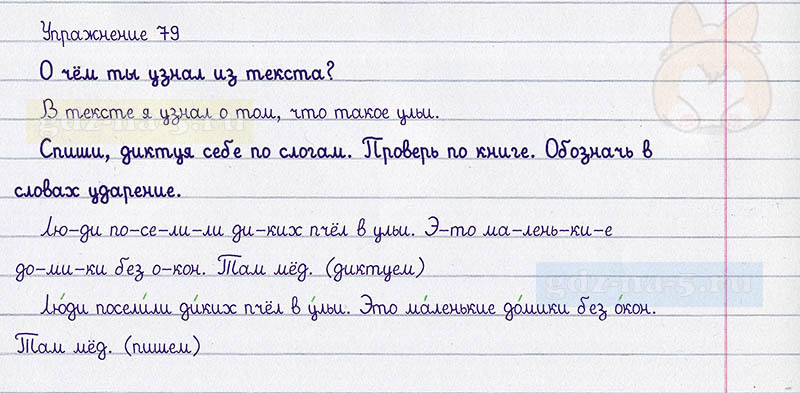 Упражнение 79
О чём ты узнал из текста?
В тексте я узнал о том, что такое ульи.
gdz-na-5.ru
Спиши, диктуя себе по слогам. Проверь по книге. Обозначь в
словах ударение.
Лю-ди по-се-ли-ли ди-ких пчёл в ульи. Э-то ма-лень-ки-е
до-ми-ки без о-кон. Там мёд. (диктуем)
gdz-na-5.ru
Лю́ди посели́ли ди́ких пчёл в у́льи. Э́то ма́ленькие до́мики без о́кон.
Там мёд. (пишем)